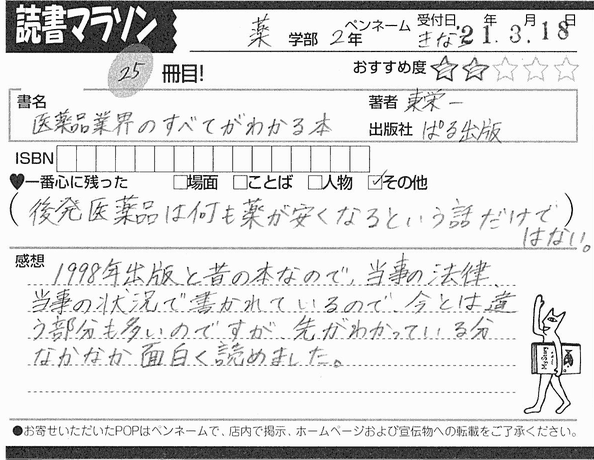 読書マラソン
薬 学部 2年 ペンネーム きなこ 受付日 年 月 日
21.3.18
25 冊目!
おすすめ度 ☆☆☆☆☆
書名 医薬品業界のすべてがわかる本
著者 東栄一
出版社 ぱる出版
ISBN
♥一番心に残った □場面 □ことば □人物 ☑その他
(後発医薬品は何も薬が安くなるという話だけで
はない。)
感想
1998年出版と昔の本なので、当事の法律、
当事の状況で書かれているので、今とは違
う部分も多いのですが 先がわかっている分
なかなか面白く読めました。
●お寄せいただいたPOPはペンネームで、店内で掲示、ホームページおよび宣伝物への転載をご了承ください。